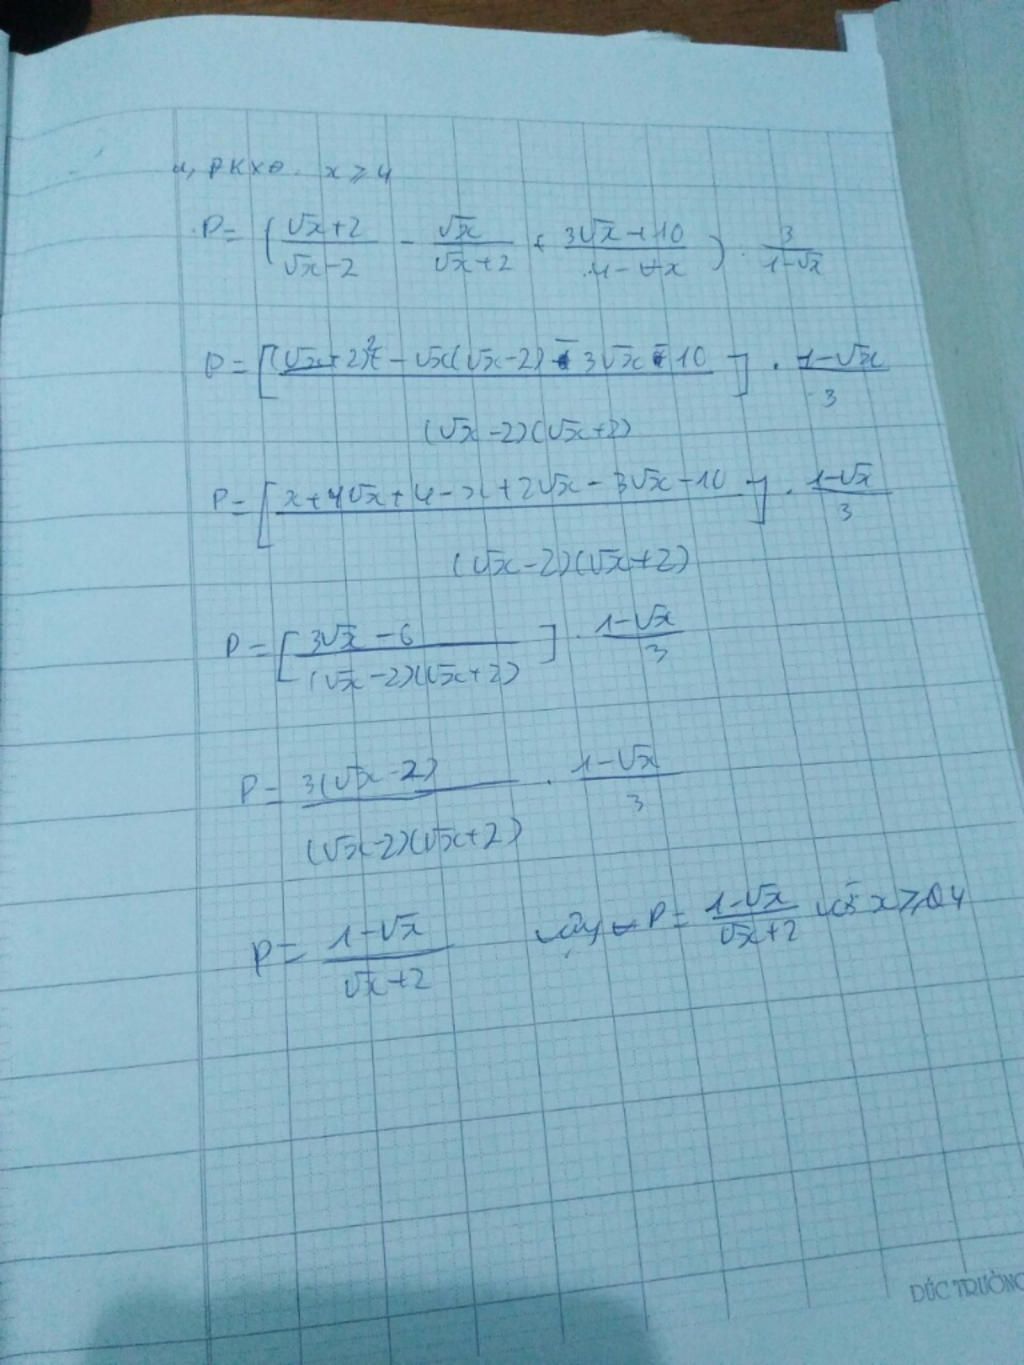 a, ĐKXĐ. x ⩾ 4
P = (√x+2/√x-2 - √x/√x+2 + 3√x+10/4-x) : 3/1-√x
P = [(√x+2)² - √x(√x-2) - 3√x - 10/(√x-2)(√x+2)] . 1-√x/3
P = [x+4√x+4-x+2√x-3√x-10/(√x-2)(√x+2)] . 1-√x/3
P = [3√x-6/(√x-2)(√x+2)] . 1-√x/3
P = 3(√x-2)/(√x-2)(√x+2) . 1-√x/3
P = 1-√x/√x+2 vậy P = 1-√x/√x+2 với x ⩾ 4
ĐỨC TRƯỜNG